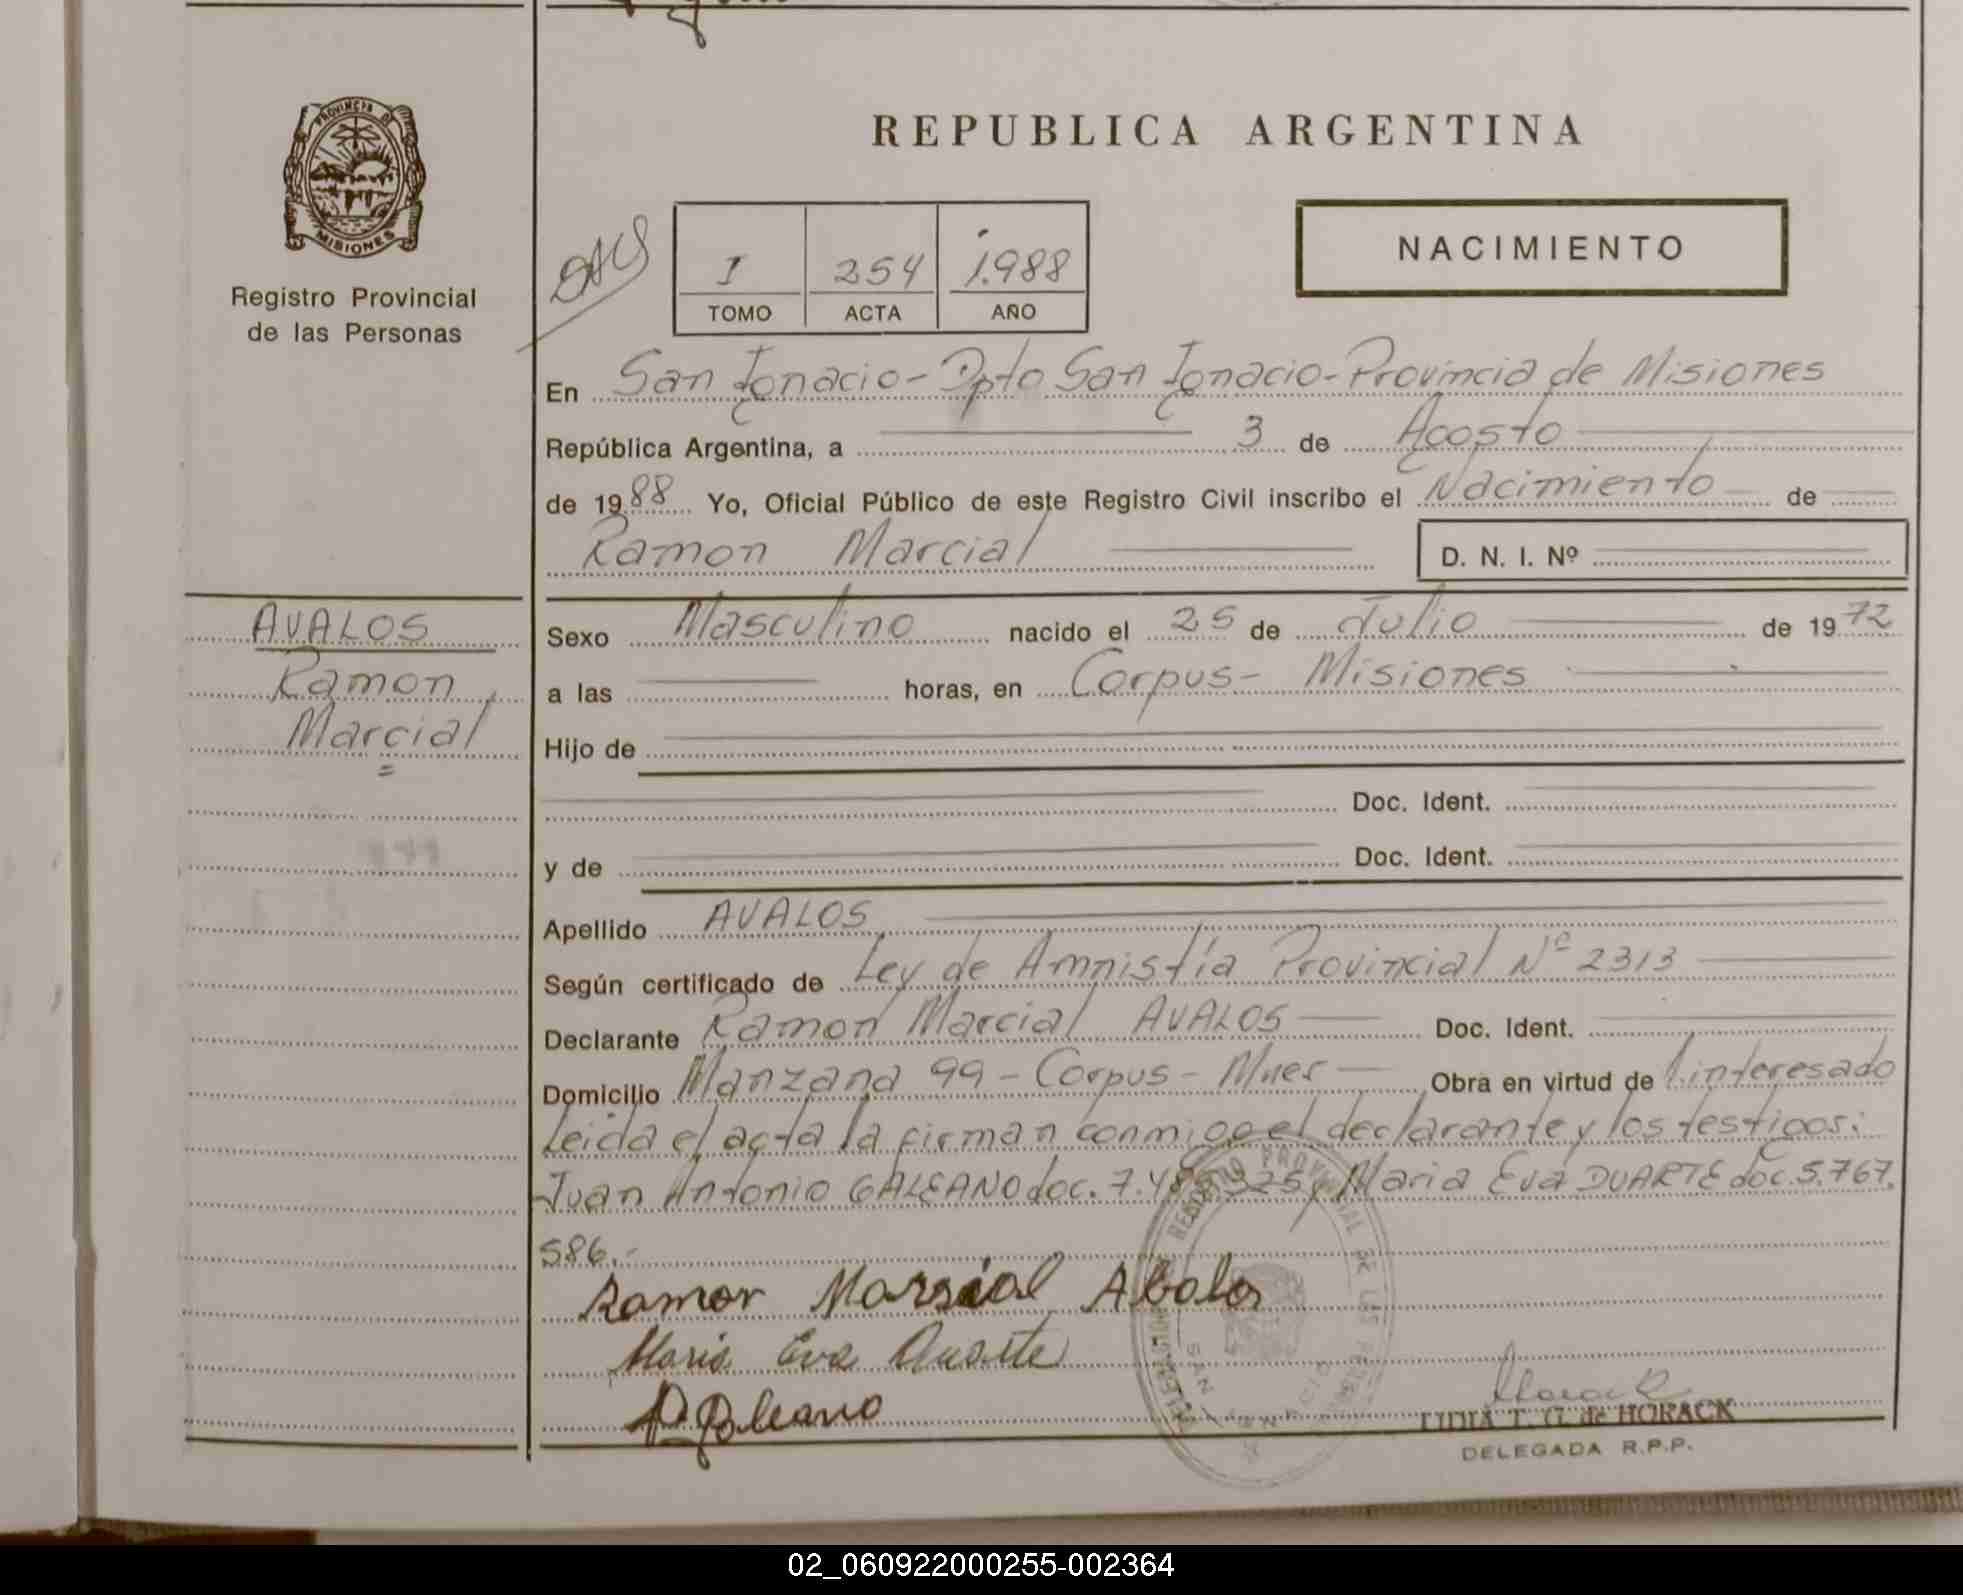 PROVINCIA DE
MISIONES
Registro Provincial
de las Personas
REPUBLICA ARGENTINA
I 254 1.988
TOMO ACTA AÑO
NACIMIENTO
En San Ignacio - Dpto San Ignacio - Provincia de Misiones
República Argentina, a 3 de Agosto
de 1988 Yo, Oficial Público de este Registro Civil inscribo el Nacimiento de
Ramon Marcial D. N. I. Nº
AVALOS
Ramon
Marcial
Sexo Masculino nacido el 25 de Julio de 1972
a las horas, en Corpus - Misiones
Hijo de
Doc. Ident.
y de Doc. Ident.
Apellido AVALOS
Según certificado de Ley de Amnistía Provincial Nº 2313
Declarante Ramon Marcial AVALOS Doc. Ident.
Domicilio Manzana 99 - Corpus - Mnes Obra en virtud de l.interesado
Leida el acta la firman conmigo el declarante y los testigos:
Juan Antonio GALEANO doc. 7. 325 y Maria Eva DUARTE doc. 5.767.
586.-
Ramon Marsial Abalos
Maria Eva Duarte
Galeano
REGISTRO PROVINCIAL DE LAS PERSONAS
SAN IGNACIO
LIDIA T. G. de HORACK
DELEGADA R.P.P.
02_060922000255-002364